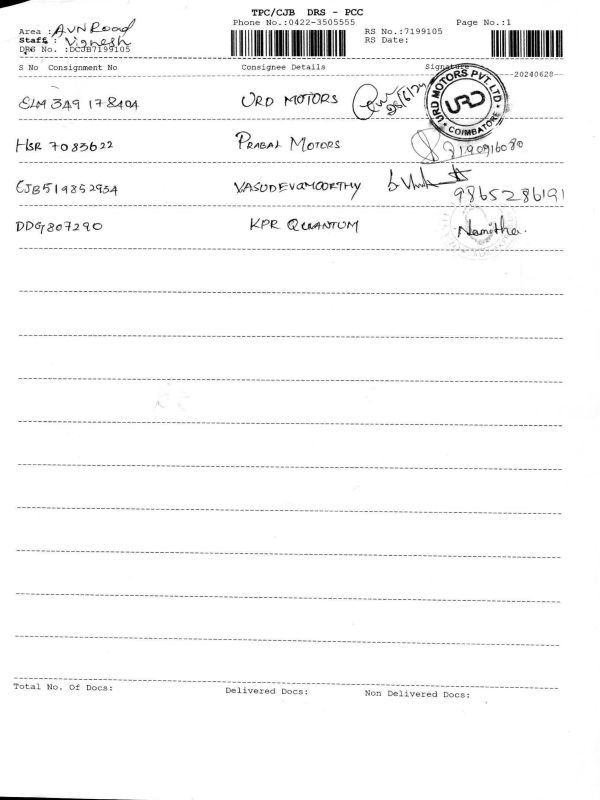 TPC/CJB DRS - PCC
Area : AVN Road Phone No.:0422-3505555 Page No.:1
Staff : Vignesh RS No.:7199105
DRS No. :DCJB7199105 RS Date:
S No Consignment No Consignee Details Signature
--20240628--
ELM 349 178404 URD MOTORS 28/6/24 URD MOTORS PVT.LTD URD COIMBATORE
HSR 7083622 PRABAL MOTORS 7190916080
EJB519852954 VASUDEVAMOORTHY 9865286191
DDG807290 KPR QUANTUM Namitha.
Total No. Of Docs: Delivered Docs: Non Delivered Docs: